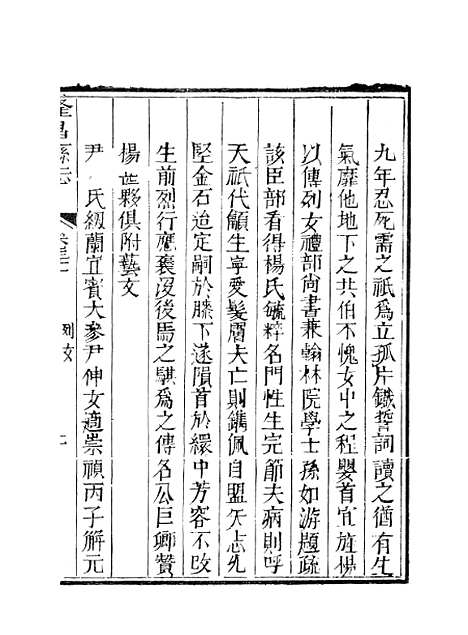 九年忍死需之祇爲立孤片鐵誓詞讀之猶有生
氣靡他地下之共伯不愧女中之程嬰首宜旌楊
以傳列女禮部尚書兼翰林院學士孫如游題疏
該臣部看得楊氏毓粹名門性生完節夫病則呼
天祇代籲生寧愛髮膚夫亡則鐫佩自盟矢志先
堅金石迨定嗣於膝下遂隕首於繯中芳容不改
生前烈行應褒歿後馬之騏爲之傳名公巨卿贊
揚甚夥俱附藝文
尹氏紉蘭宜賓大參尹伸女適崇禎丙子解元
隆昌縣志
列女